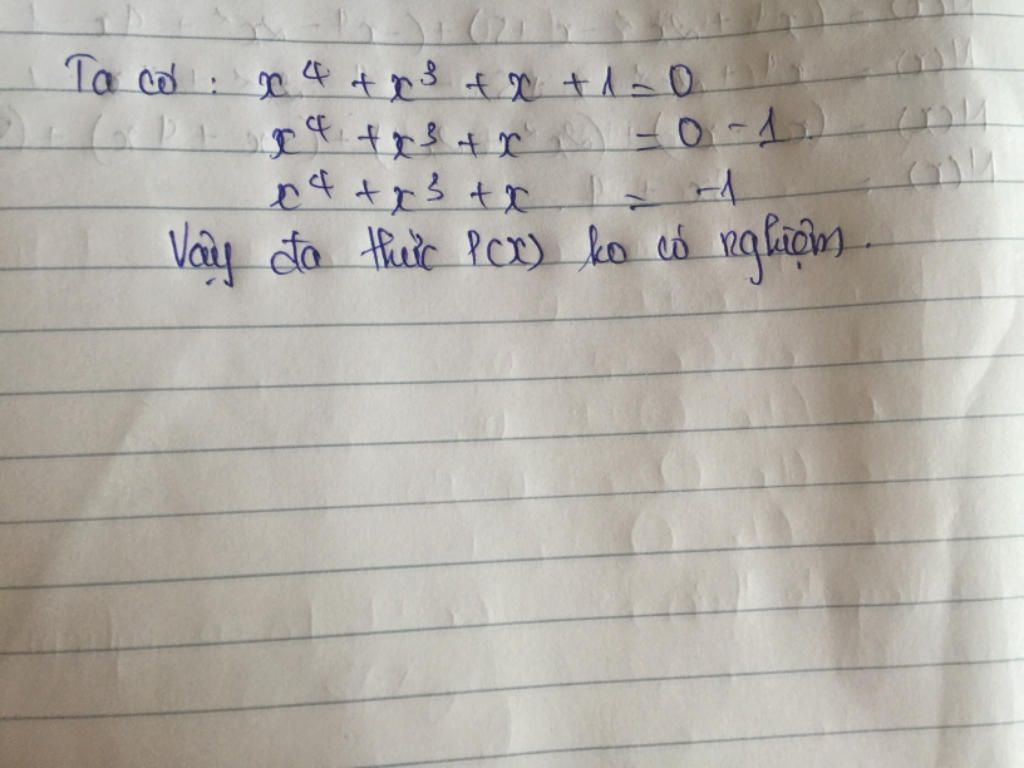 Ta có : x⁴ + x³ + x + 1 = 0
x⁴ + x³ + x = 0 - 1
x⁴ + x³ + x = -1
Vậy đa thức P(x) ko có nghiệm.